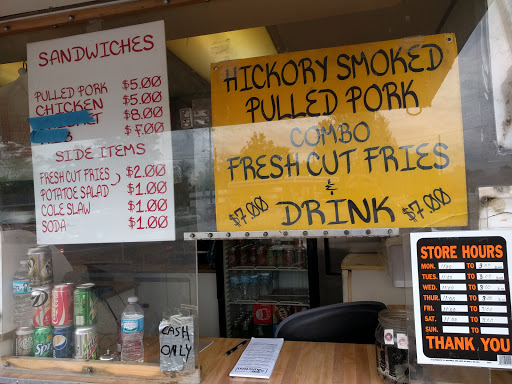 SANDWICHES
PULLED PORK $5.00
CHICKEN $5.00
$8.00
SIDE ITEMS
FRESH CUT FRIES $2.00
POTATOE SALAD $1.00
COLE SLAW $1.00
SODA $1.00
HICKORY SMOKED
PULLED PORK
COMBO
FRESH CUT FRIES
&
$7.00 DRINK $7.00
CASH
ONLY
STORE HOURS
MON. TO
TUES. TO
WED. TO
THUR. TO
FRI. TO
SAT. TO
SUN. TO
THANK YOU